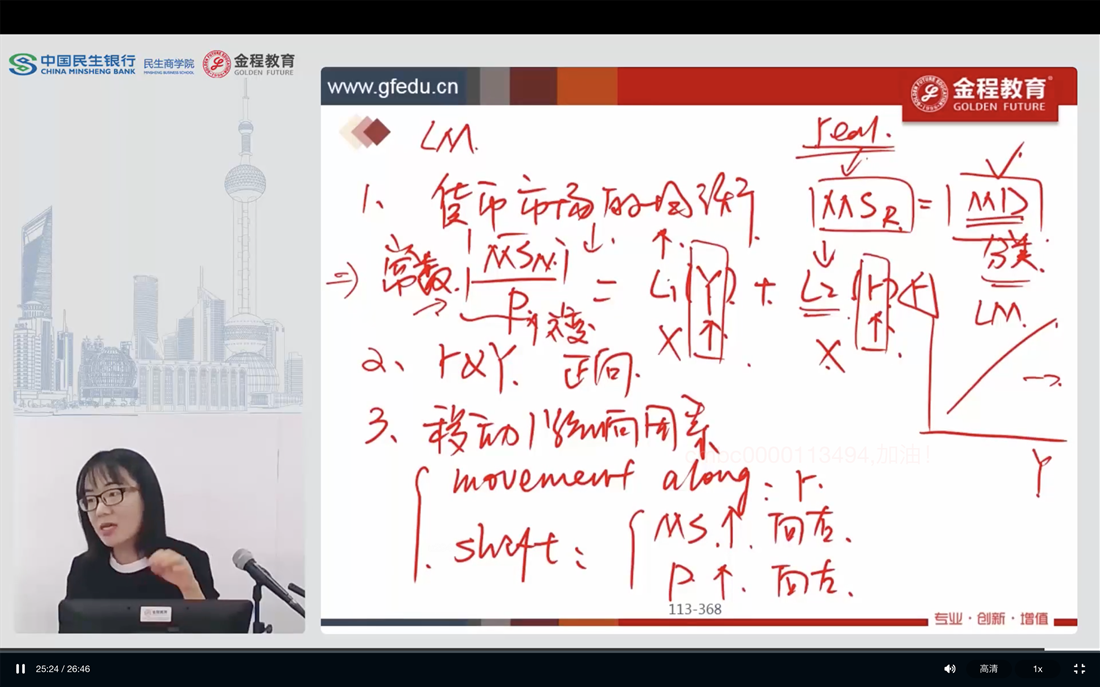 中国民生银行
CHINA MINSHENG BANK
民生商学院
MINSHENG BUSINESS SCHOOL
金程教育
GOLDEN FUTURE
www.gfedu.cn
金程教育
GOLDEN FUTURE
LM.
real.
1、货币市场的均衡
MS R = MD
分类.
=) 常数. MS N. / P 不变 = L1 (Y) + L2 (r)
X X
LM.
r
2、r & Y. 正向.
3、移动 影响因素
0000113494,加油!
Y
movement along: r.
shift: MS.↑. 向右.
P.↑. 向左.
113-368
专业·创新·增值
25:24 / 26:46
高清
1x